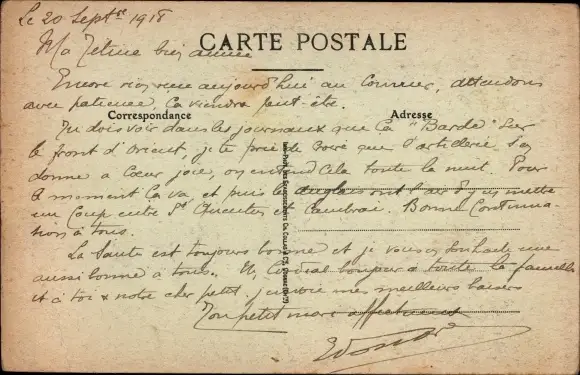 Le 20 Septbre 1918
Ma Titine bien aimée
CARTE POSTALE
Encore rien reçu aujourd'hui au Courrier, attendons
avec patience, Ça viendra peut-être.
Correspondance
Adresse
Tu dois voir dans les journaux que ça "Barde" sur
le front d'Orient, je te prie de croire que l'artillerie s'en
donne à Cœur joie, on entend cela toute la nuit. Pour
le moment ça va et puis les anglais ont l'air d'en mettre
un Coup entre St Quentin et Cambrai. Bonne Continua-
tion à tous.
La Santé est toujours bonne et je vous en souhaite une
aussi bonne à tous. Un Cordial bonjour à toute la famille
et à toi & notre cher petit j'envoie mes meilleurs baisers
Ton petit mari affectueux